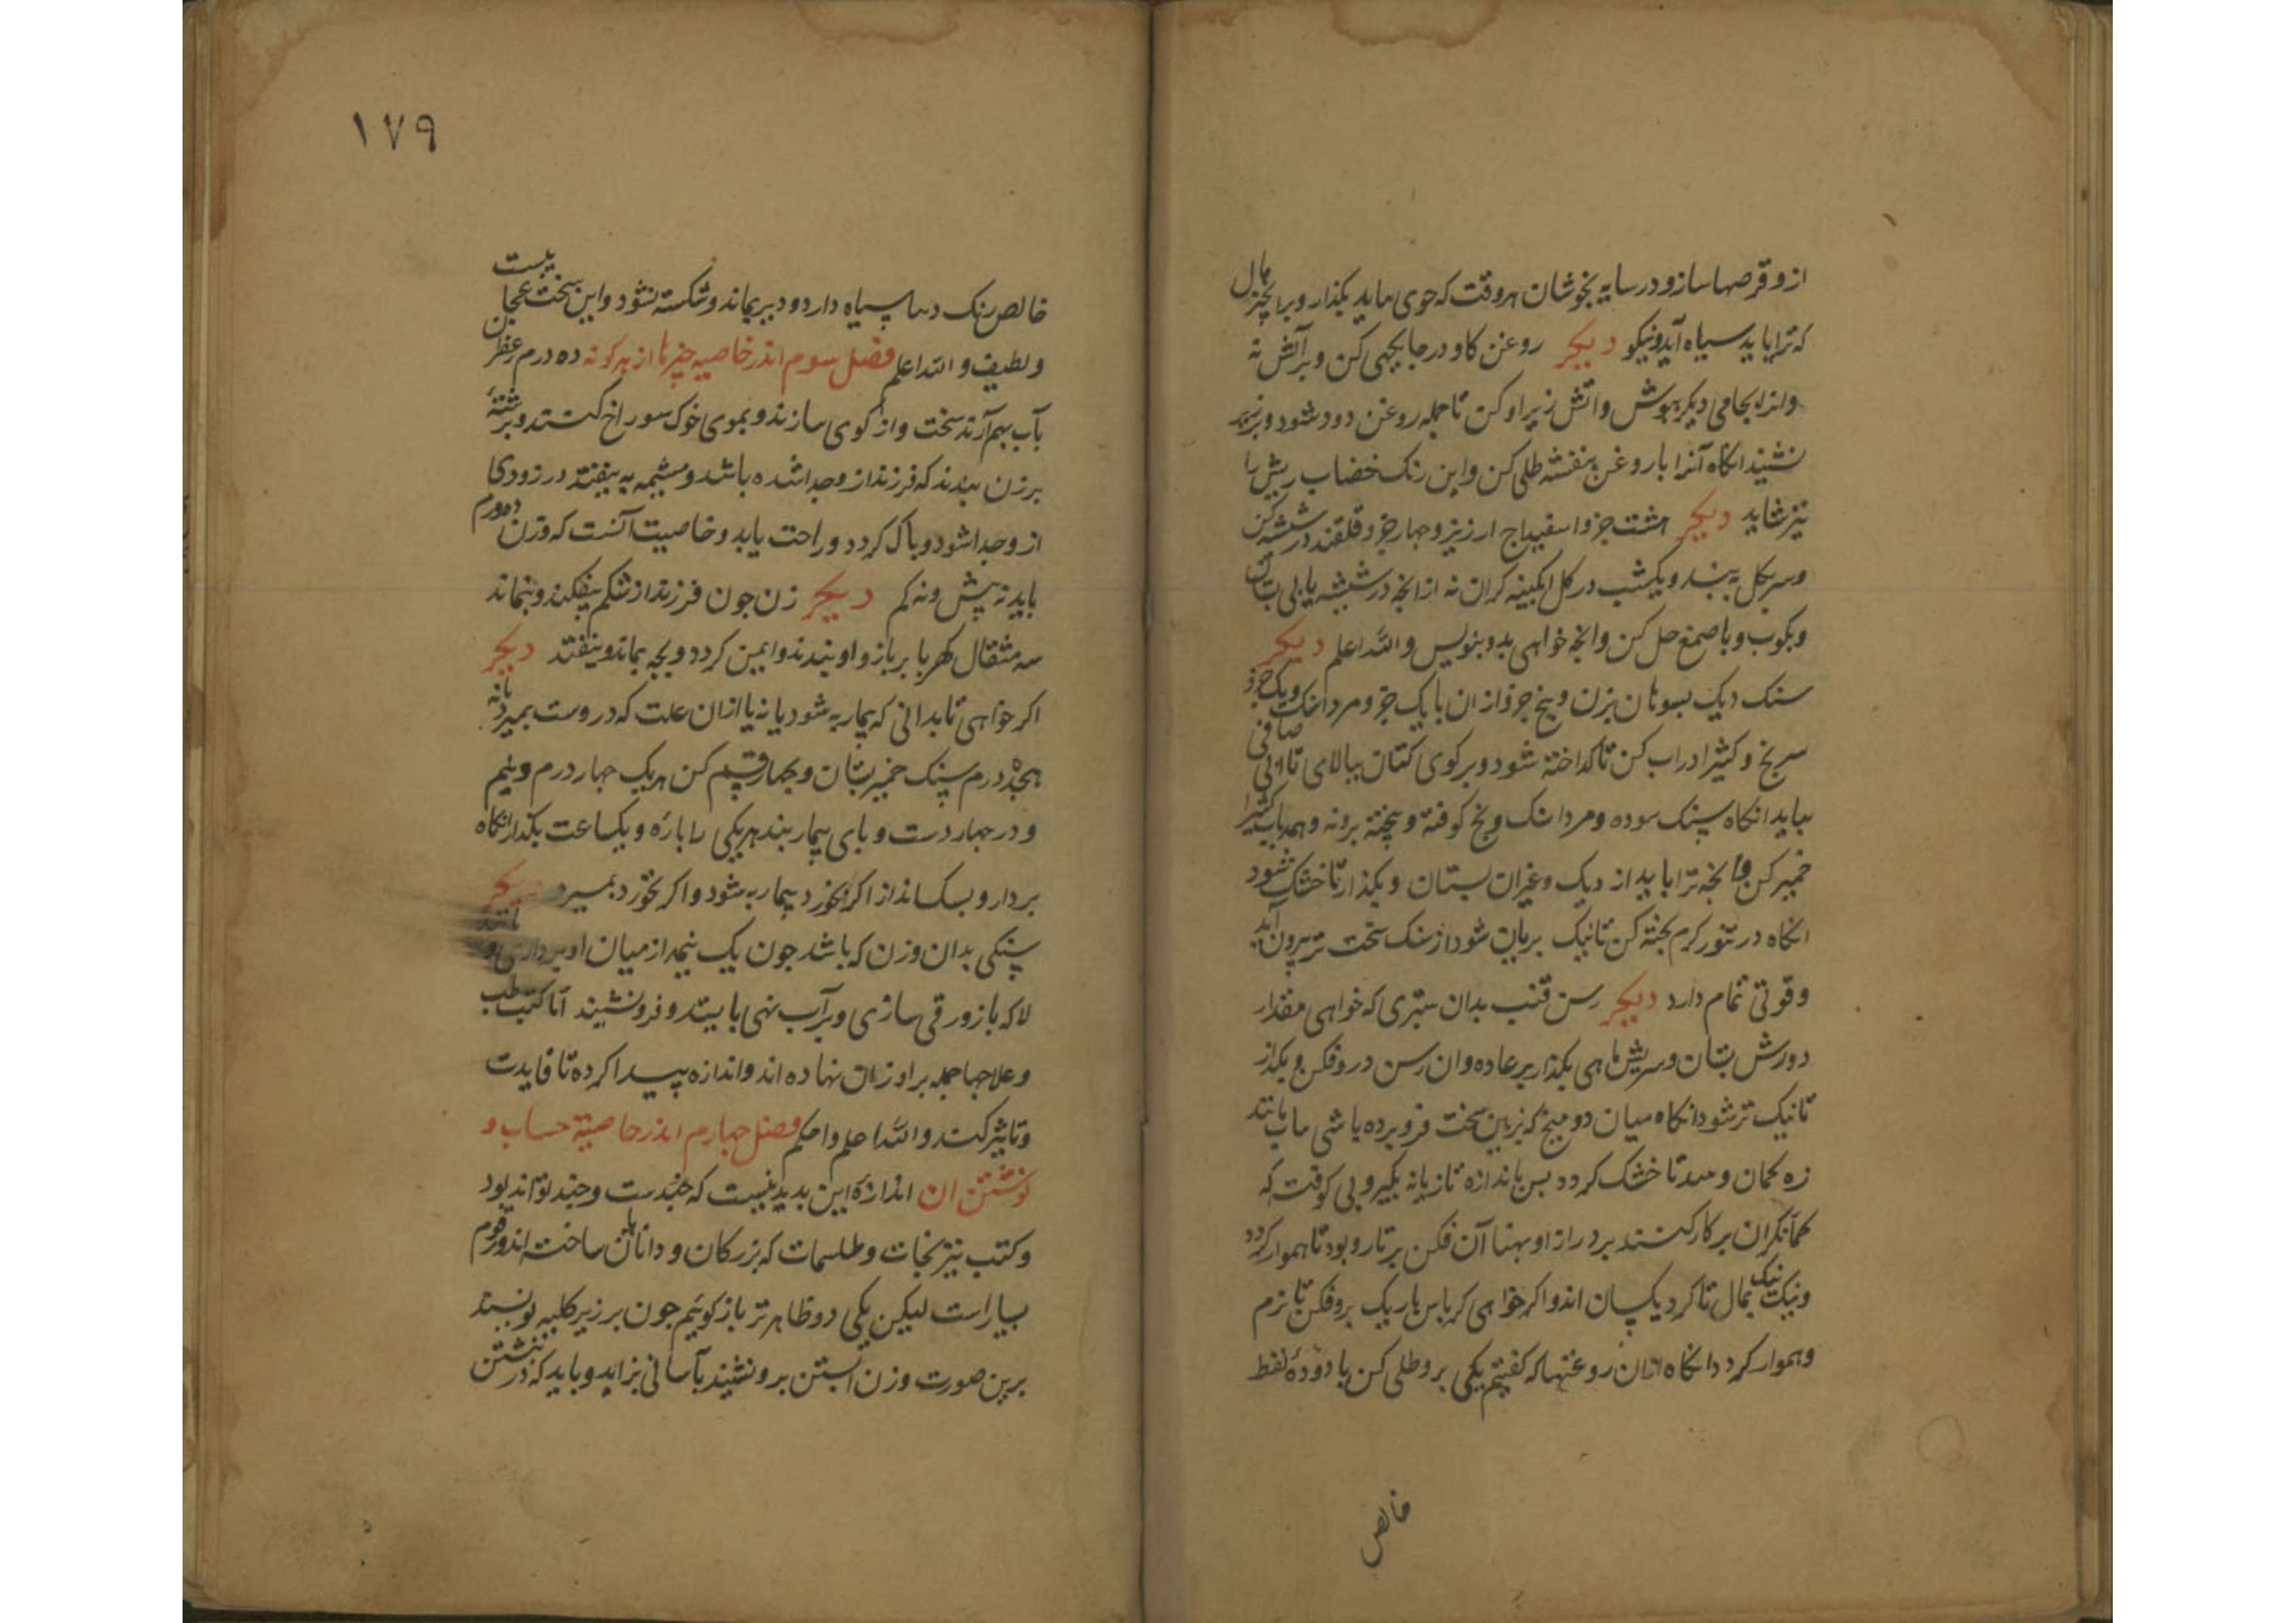 از و قرصها ساز و در سایه بخوشان هر وقت که جوی بباید بکذار و برانجیز بمال
که ترا باید سیاه آید و نیکو دیکر روغن کاو در جایجهی کن و بر آتش نه
و اندر بجامی دیکر بپوش و اتش زیر او کن تا جمله روغن دود شود و بزیر
نشیند انکاه آنرا با روغن بنفشه طلی کن و این رنک خضاب ریش را
نیز شاید دیکر هشت جزو اسفیداج ارزیز و جهار جزو قلقند در شیشه کن
و سر بکل ببند و یکشب در کل ابکینه کران نه از انجه در شیشه یابی بستان
و بکوب و با صمغ حل کن و انجه خواهی بدو بنویس و الله اعلم دیکر
سنک دیک بسوهان بزن و پنج جزو از ان با یک جزو مرداسنک و یک جزو
سریخ و کثیرا در اب کن تا کداخته شود و بر کوی کتان ببالای تا ابی صافی
بیاید انکاه سنک سوده و مرداسنک و کوفته و بیخته برو نه و همه باب کثیرا
خمیر کن و انجه ترا باید از دیک و غیر ان بستان و بکذار تا خشک شود
انکاه در تنور کرم بخته کن تا نیک بریان شود از سنک سخت تر بیرون آید
و قوتی تمام دارد دیکر رسن قنب بدان ستبری که خواهی مقدار
دورش بستان و سریش ماهی بکذار بر عاده و ان رسن درو فکن و بکذار
تا نیک تر شود انکاه میان دو میخ که بزمین سخت فرو برده باشی مانند
زه کمان و تا خشک کردد بس باندازه تازیانه بکیر و بی کوفته که
کمانکران بر کار کنند بر دراز او بهنا آن فکن بر تار و بود تا هموار کردد
و نیک نیک بمال تا کرد یکسان اندو اکر خواهی کرباس باریک برو فکن تا نرم
و هموار کردد انکاه ازان روغنها که کفتیم یکی برو طلی کن با دودۀ نفط
خالص
١٧٩
خالص رنک سیاه دارد و دیر بماند و شکسته نشود و این سخت عجایبست
و لطیف و الله اعلم فصل سوم اندر خاصیه جیزها از هر کونه ده درم زعفران
بآب بهم آرند سخت و از کوی سازند و بموی خوک سوراخ کنند و برشتۀ
بر زن ببندند که فرزند از و جدا شده باشد و مشیمه به بیفتد در زودی
از و جدا شود و باک کردد و راحت یابد و خاصیت آنست که وزن ده درم
باید نه بیش و نه کم دیکر زن جون فرزند از شکم بیفکند و بنماند
سه مثقال کهربا بر بازو او بندند و ایمن کردد و بجه بماند و بیفتد دیکر
اکر خواهی تا بدانی که بیمار به شود یا نه یا از ان علت که دروست بمیرد یا نه
هجده درم سنک خمیر بستان و بجهار قسم کن هر یک جهار درم و نیم
و در جهار دست و بای بیمار بند هر یکی را بارۀ و یکساعت بکذار انکاه
بردار و بسک انداز اکر بخورد بیمار به شود و اکر نخورد بمیرد دیکر
سنکی بدان وزن که باشد جون یک نیمه از میان او برداری و مانند
لاکه باز ورقی سازی و بر آب نهی بایستد و فرو نشیند اما کتب طب
و علاجها جمله بر اوزان نهاده اند و اندازه بیدا کرده تا فایدت
و تاثیر کند و الله اعلم و احکم فصل جهارم اندر خاصیة حساب و
نوشتن ان اندازۀ این بدید نیست که جندست و جند تواند بود
و کتب نیرنجات و طلسمات که بزرکان و دانایان ساخته اند و رقوم
بسیار است لیکن یکی دو ظاهرتر باز کوئیم جون بر زیر کلیه نویسند
برین صورت و زن آبستن برو نشیند بآسانی بزاید و باید که در نبشتن